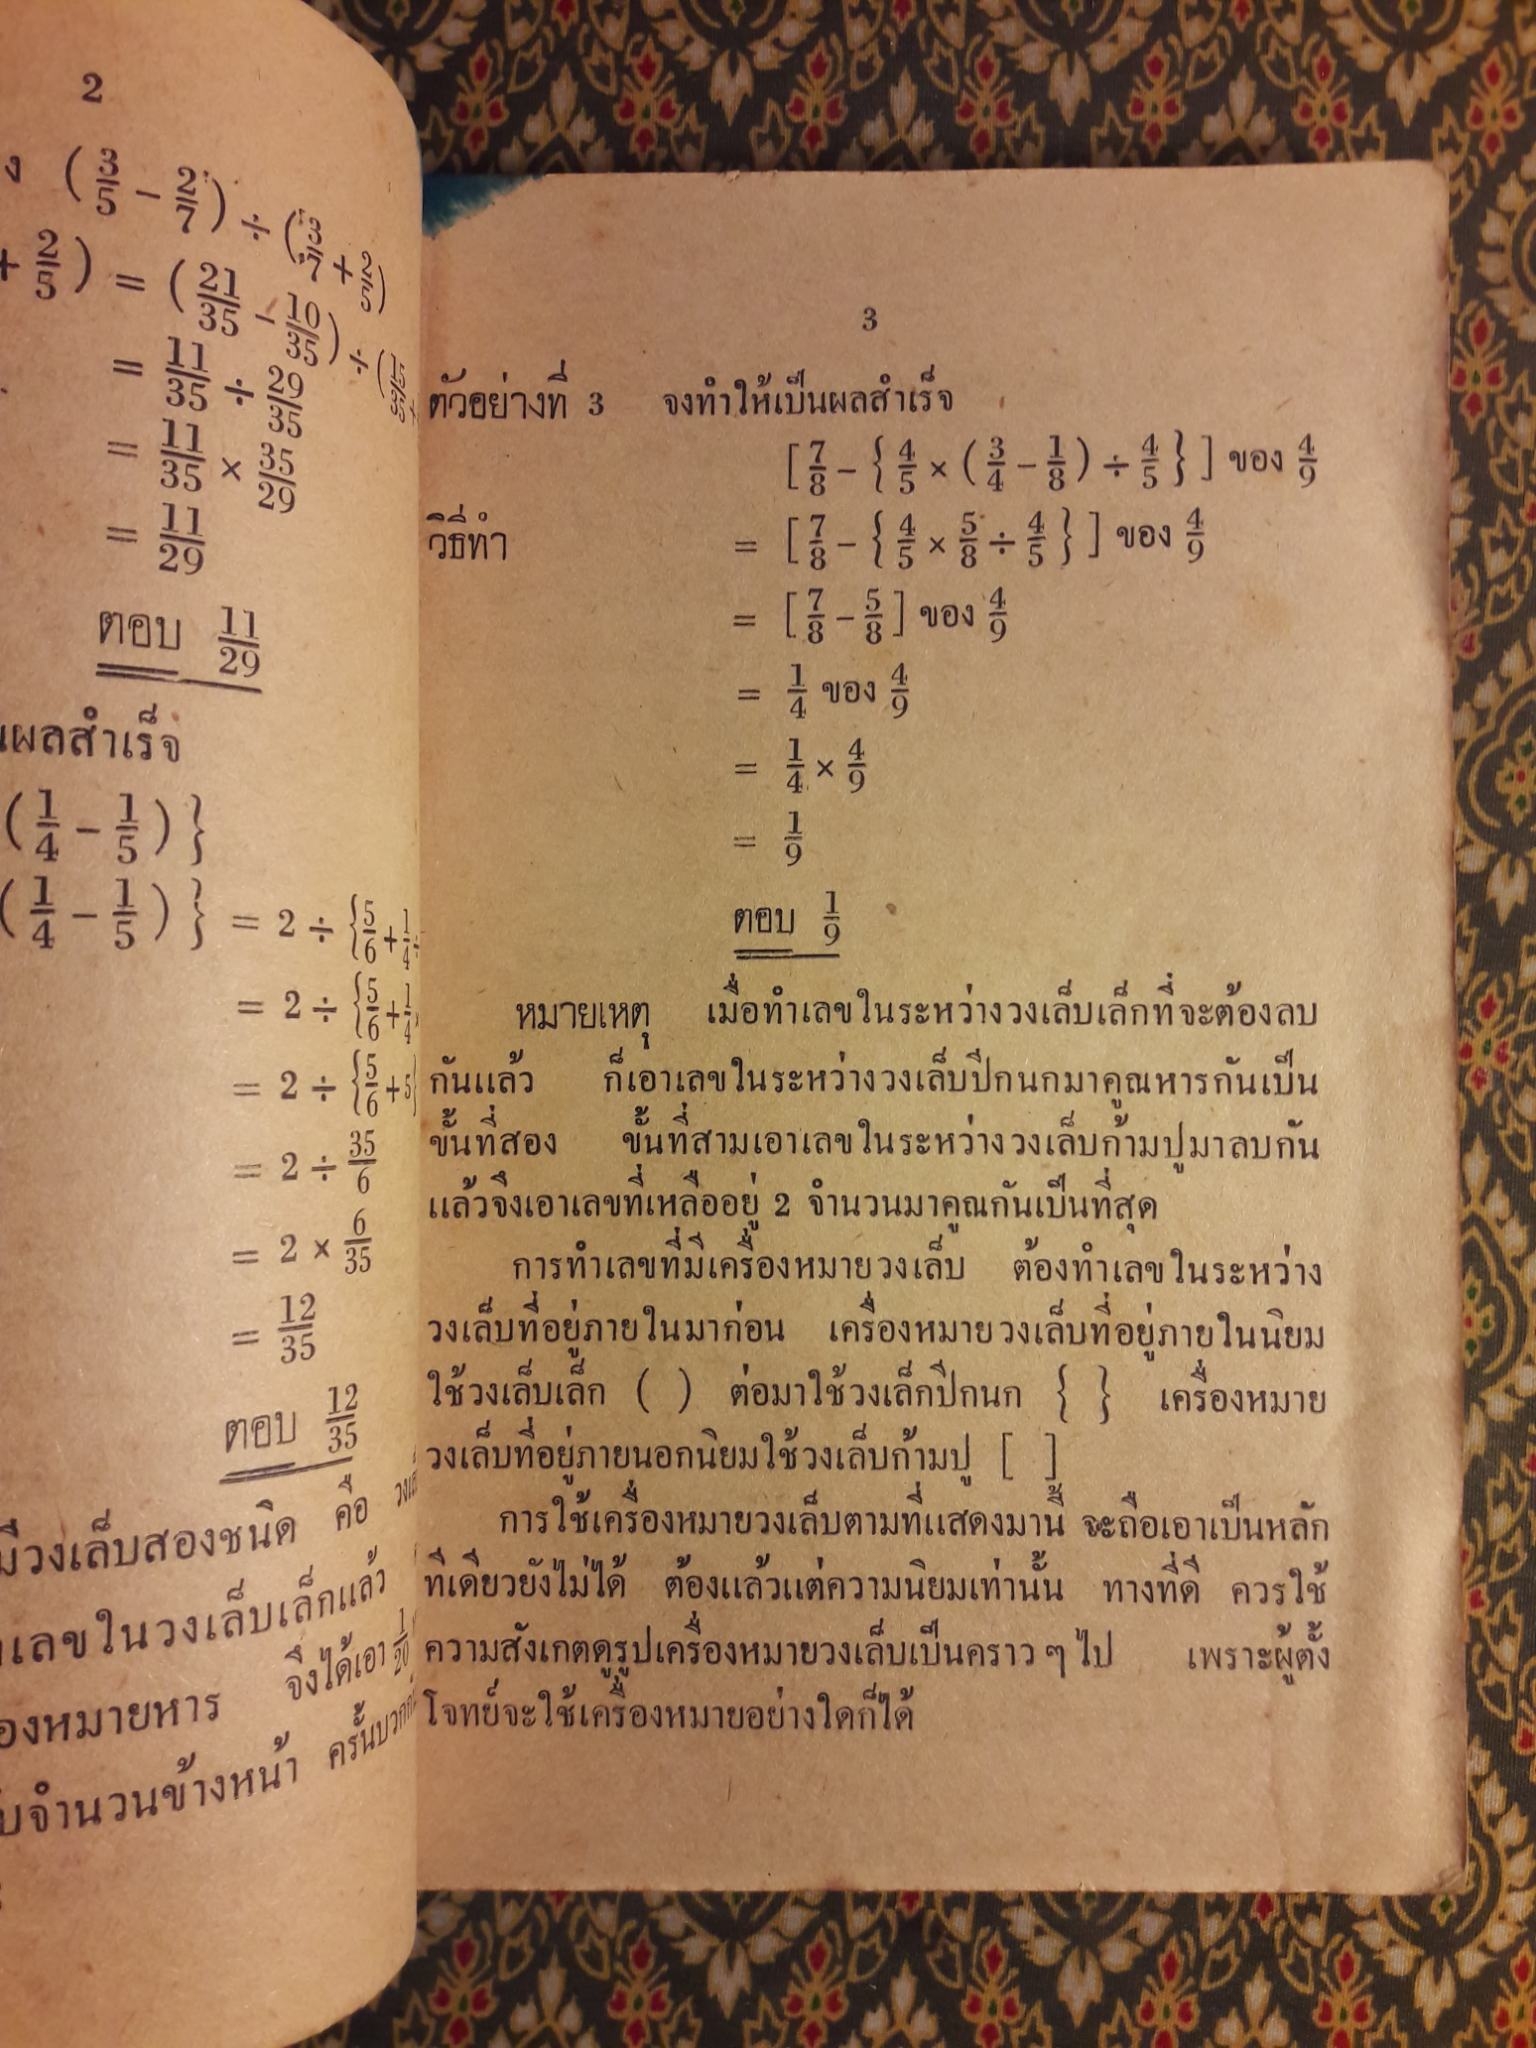 2
(3/5 − 2/7) ÷
+ 2/5) = (21/35 − 10/35) ÷
= 11/35 ÷ 29/35
= 11/35 × 35/29
= 11/29
ตอบ 11/29
ผลสำเร็จ
(1/4 − 1/5)}
(1/4 − 1/5)} = 2 ÷ {5/6 + 1/4 ÷
= 2 ÷ {5/6 + 1/4
= 2 ÷ {5/6 + 5}
= 2 ÷ 35/6
= 2 × 6/35
= 12/35
ตอบ 12/35
มีวงเล็บสองชนิด คือ
เลขในวงเล็บเล็กแล้ว
หมายหาร จึงได้เอา 1/20
จำนวนข้างหน้า ครั้นบวก
3
ตัวอย่างที่ 3 จงทำให้เป็นผลสำเร็จ
[7/8 − {4/5 × (3/4 − 1/8) ÷ 4/5}] ของ 4/9
วิธีทำ = [7/8 − {4/5 × 5/8 ÷ 4/5}] ของ 4/9
= [7/8 − 5/8] ของ 4/9
= 1/4 ของ 4/9
= 1/4 × 4/9
= 1/9
ตอบ 1/9
หมายเหตุ เมื่อทำเลขในระหว่างวงเล็บเล็กที่จะต้องลบ
กันแล้ว ก็เอาเลขในระหว่างวงเล็บปีกนกมาคูณหารกันเป็น
ขั้นที่สอง ขั้นที่สามเอาเลขในระหว่างวงเล็บก้ามปูมาลบกัน
แล้วจึงเอาเลขที่เหลืออยู่ 2 จำนวนมาคูณกันเป็นที่สุด
การทำเลขที่มีเครื่องหมายวงเล็บ ต้องทำเลขในระหว่าง
วงเล็บที่อยู่ภายในมาก่อน เครื่องหมายวงเล็บที่อยู่ภายในนิยม
ใช้วงเล็บเล็ก ( ) ต่อมาใช้วงเล็กปีกนก { } เครื่องหมาย
วงเล็บที่อยู่ภายนอกนิยมใช้วงเล็บก้ามปู [ ]
การใช้เครื่องหมายวงเล็บตามที่แสดงมานี้ จะถือเอาเป็นหลัก
ทีเดียวยังไม่ได้ ต้องแล้วแต่ความนิยมเท่านั้น ทางที่ดี ควรใช้
ความสังเกตดูรูปเครื่องหมายวงเล็บเป็นคราว ๆ ไป เพราะผู้ตั้ง
โจทย์จะใช้เครื่องหมายอย่างใดก็ได้